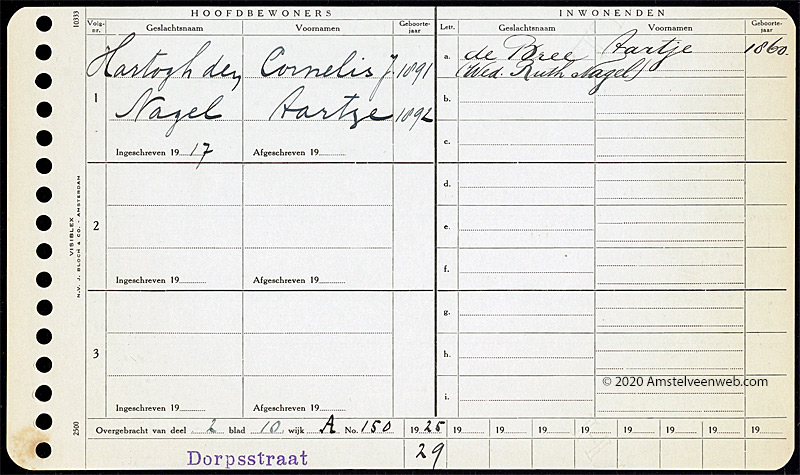 HOOFDBEWONERS
INWONENDEN
10333
Volg-nr.
Geslachtsnaam
Voornamen
Geboorte-jaar
Lettr.
Geslachtsnaam
Voornamen
Geboorte-jaar
1
Hartogh den
Cornelis J.
1891
Nagel
Aartje
1892
Ingeschreven 19 17
Afgeschreven 19
2
Ingeschreven 19
Afgeschreven 19
3
Ingeschreven 19
Afgeschreven 19
a.
de Bree
Aartje
1860.
(Wed. Ruth Nagel)
b.
c.
d.
e.
f.
g.
h.
i.
VISIBLEX
N.V. J. BLOCH & CO. - AMSTERDAM
2500
© 2020 Amstelveenweb.com
Overgebracht van deel 2 blad 10 wijk A No. 150
19 25
19
19
19
19
19
19
19
19
Dorpsstraat
29